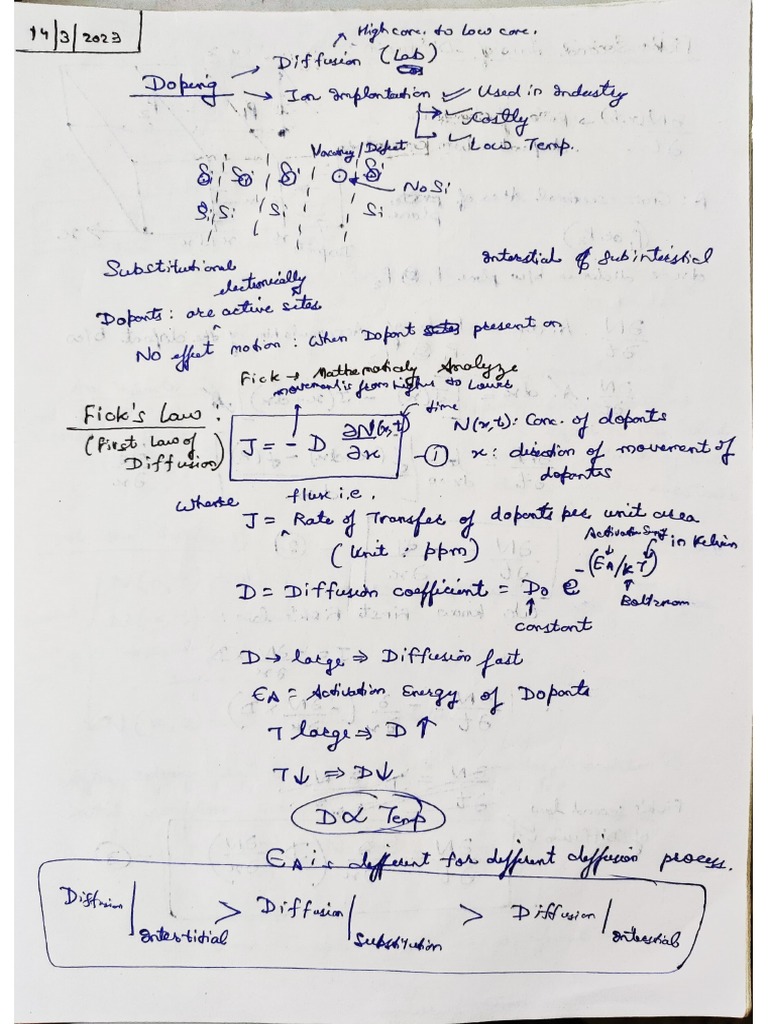 14/3/2023
High conc. to Low conc.
Diffusion (Lab)
Doping
Ion Implantation Used in Industry
Costly
Low Temp.
Vacancy/Defect
Si Si Si Si
No Si
Si Si Si Si
Substitutional
Interstial & Subinterstial
electronically
Doponts: are active sites
No effect motion: When Dopont present on
Fick → Mathematicaly Analyze
movement is from higher to Lower
Fick's Law:
(First Law of
Diffusion)
J = - D ∂N(x,t)/∂x
time
—①
N(x,t): Conc. of doponts
x: direction of movement of
dopontes
where
flux i.e.
J = Rate of Transfer of doponts per unit area
(Unit: ppm)
Activation Energy
in Kelvin
D = Diffusion coefficient = D₀ e^-(EA/KT)
Boltzmam
constant
D → large ⇒ Diffusion fast
EA = Activation Energy of Doponts
T large ⇒ D ↑
T↓ ⇒ D↓
D∝ Temp
EA is different for different diffusion process.
Diffusion | Interstitial > Diffusion | Substitution > Diffusion | Interstial